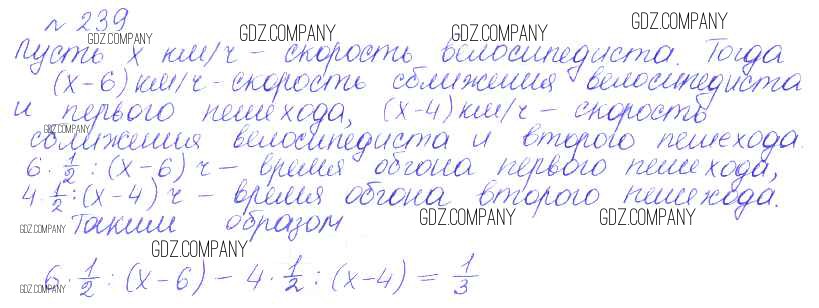 № 239
GDZ.COMPANY GDZ.COMPANY GDZ.COMPANY GDZ.COMPANY
Пусть х км/ч – скорость велосипедиста. Тогда
(х-6) км/ч - скорость сближения велосипедиста
и первого пешехода, (х-4) км/ч – скорость
GDZ.COMPANY
сближения велосипедиста и второго пешехода.
6·1/2 : (х-6) ч – время обгона первого пешехода,
4·1/2 : (х-4) ч – время обгона второго пешехода.
GDZ.COMPANY Таким образом GDZ.COMPANY GDZ.COMPANY
GDZ.COMPANY
6·1/2 : (х-6) – 4·1/2 : (х-4) = 1/3
GDZ.COMPANY